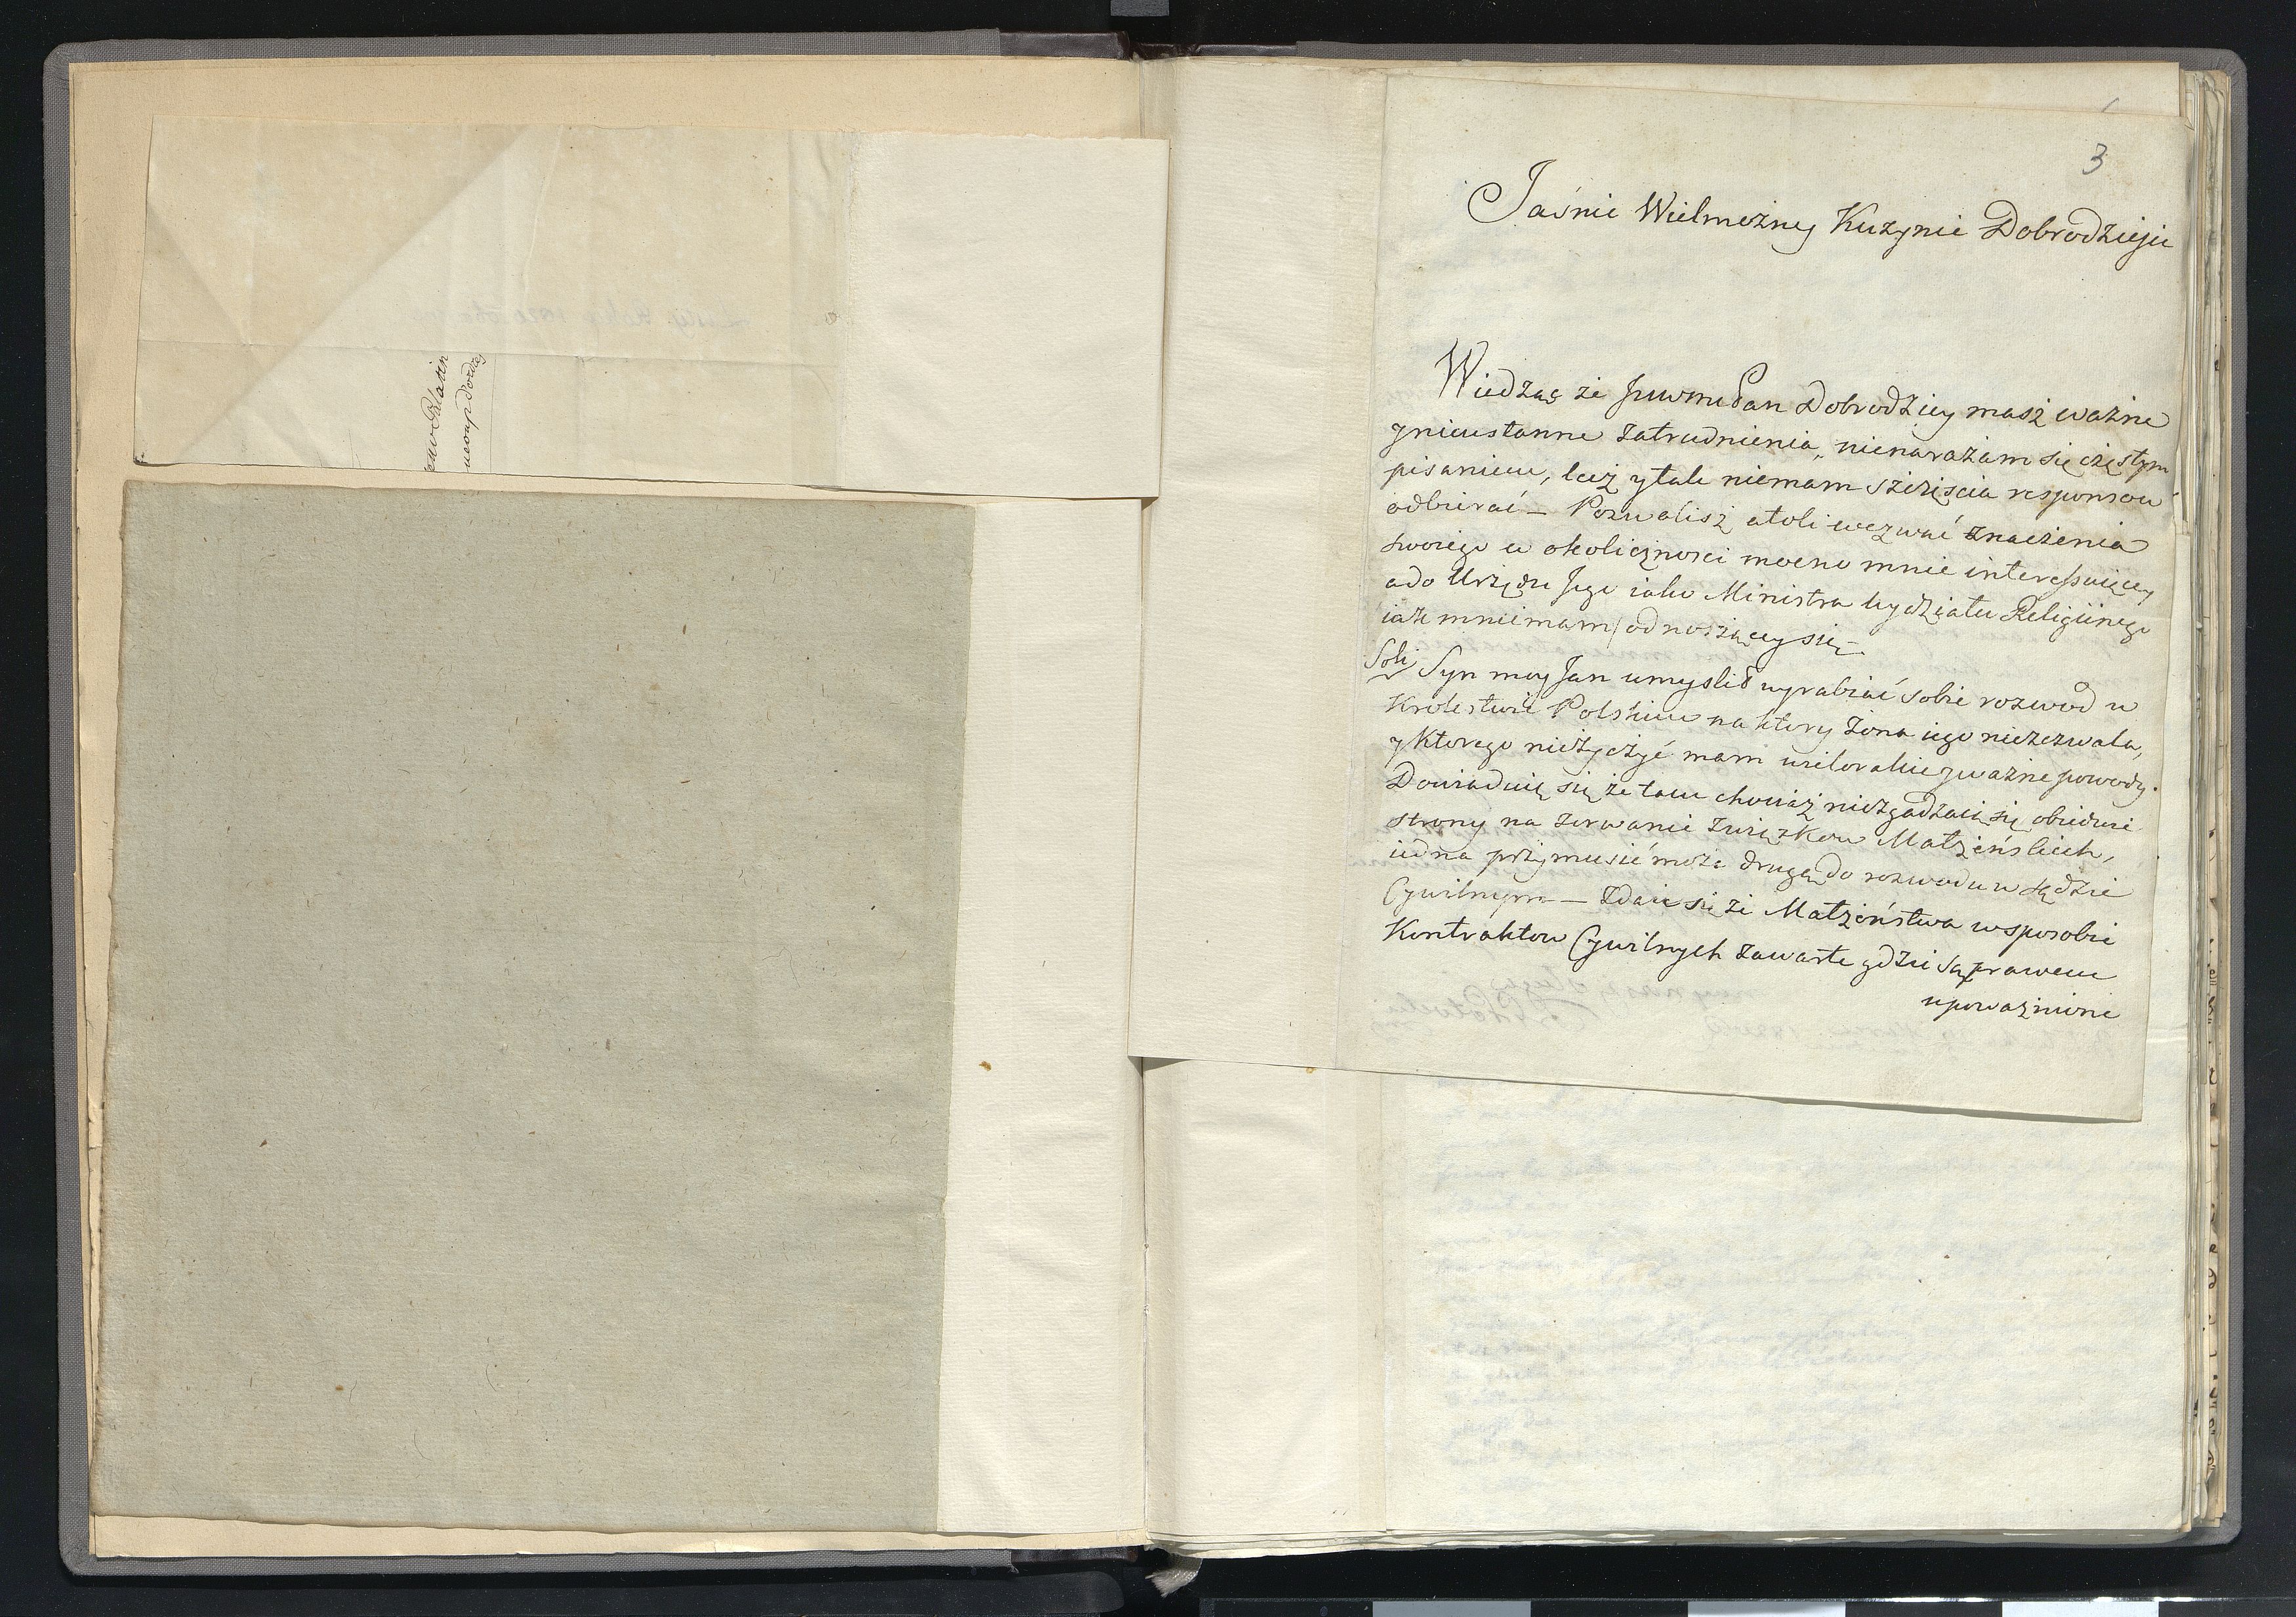 3
Jaśnie Wielmożny Kuzynie Dobrodzieju
Wiedząc że Pan Dobrodziey masz ważne
y nieustanne zatrudnienia, nienarażam się częstym
pisaniem, lecz y tak niemam szczęscia responsow
odbierać — Pozwolisz atoli wezwać znaczenia
swoiego w okoliczności mocno mnie interessuiącey
a do Urzędu Jego iako Ministra Wydziału Religiinego
iak mniemam/ odnoszącey się —
Syn moy Jan umyslił wyrabiać sobie rozwod w
Krolestwie Polskim na ktory żona iego niezezwala,
y ktorego nieżyczyć mam wielorakie y ważne powody.
Dowiaduię się że tam chociaż niezgadzaią się obiedwie
strony na zerwanie związkow Małżeńskich,
iedna przymusić może drugą do rozwodu w sądzie
Cywilnym — Zdaie się że Małżeństwa w sposobie
Kontraktow Cywilnych zawarte gdzie są prawem
upoważnione